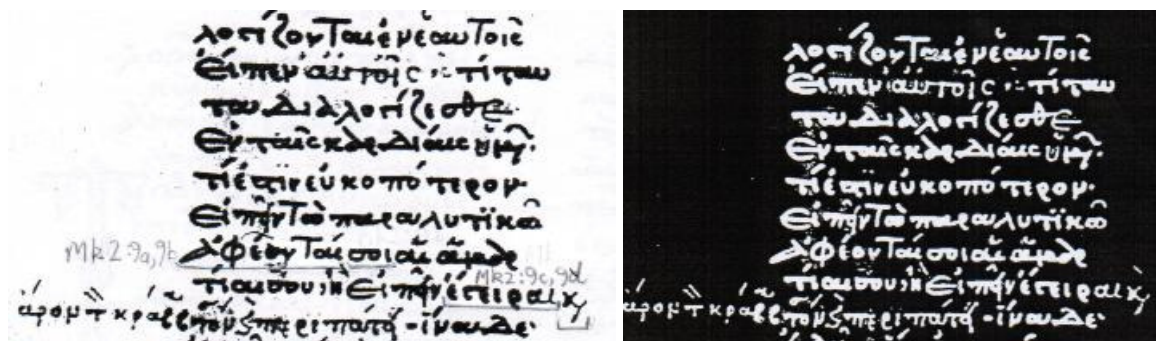 λογίζονται ἐν ἑαυτοῖς
Εἶπεν αὐτοῖς· τί ταυ
τα διαλογίζεσθε
Ἐν ταῖς καρδίαις ὑμῶ·
τί ἐστιν εὐκοπότερον·
Εἰπεῖν τῶ παραλυτϊκῶ
Mk2:9a,9b Ἀφέονταί σοι αἱ ἁμαρ
Mk2:9c,9d
τίαι σου, ἢ Εἰπεῖν ἔγειραι κ
ἆρον τ κράββτον περιπάτει - ἵνα δὲ
λογίζονται ἐν ἑαυτοῖς
Εἶπεν αὐτοῖς· τί ταυ
τα διαλογίζεσθε
Ἐν ταῖς καρδίαις ὑμῶ·
τί ἐστιν εὐκοπότερον·
Εἰπεῖν τῶ παραλυτϊκῶ
Ἀφέονταί σοι αἱ ἁμαρ
τίαι σου, ἢ Εἰπεῖν ἔγειραι κ
ἆρον τ κράββτον περιπάτει - ἵνα δὲ